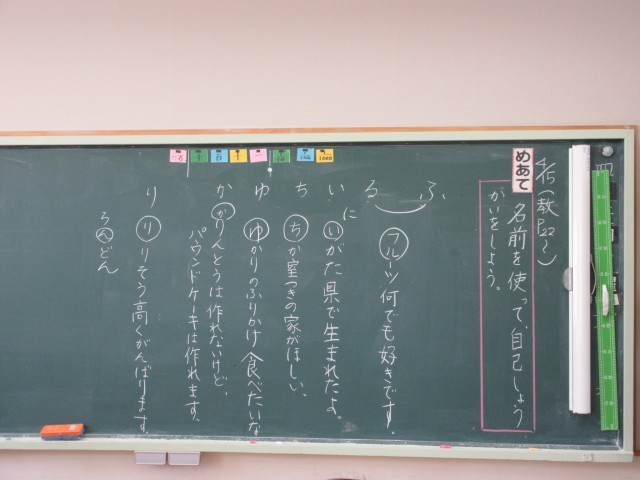 4/15(教P22〜)
めあて
名前を使って、自己しょう
かいをしよう。
ふる
フルーツ何でも好きです。
い
にいがた県で生まれたよ。
ち
ちか室つきの家がほしい。
ゆ
ゆかりのふりかけ食べたいな
か
かりんとうは作れないけど、
パウンドケーキは作れます。
り
りそう高くがんばります。
うんどん